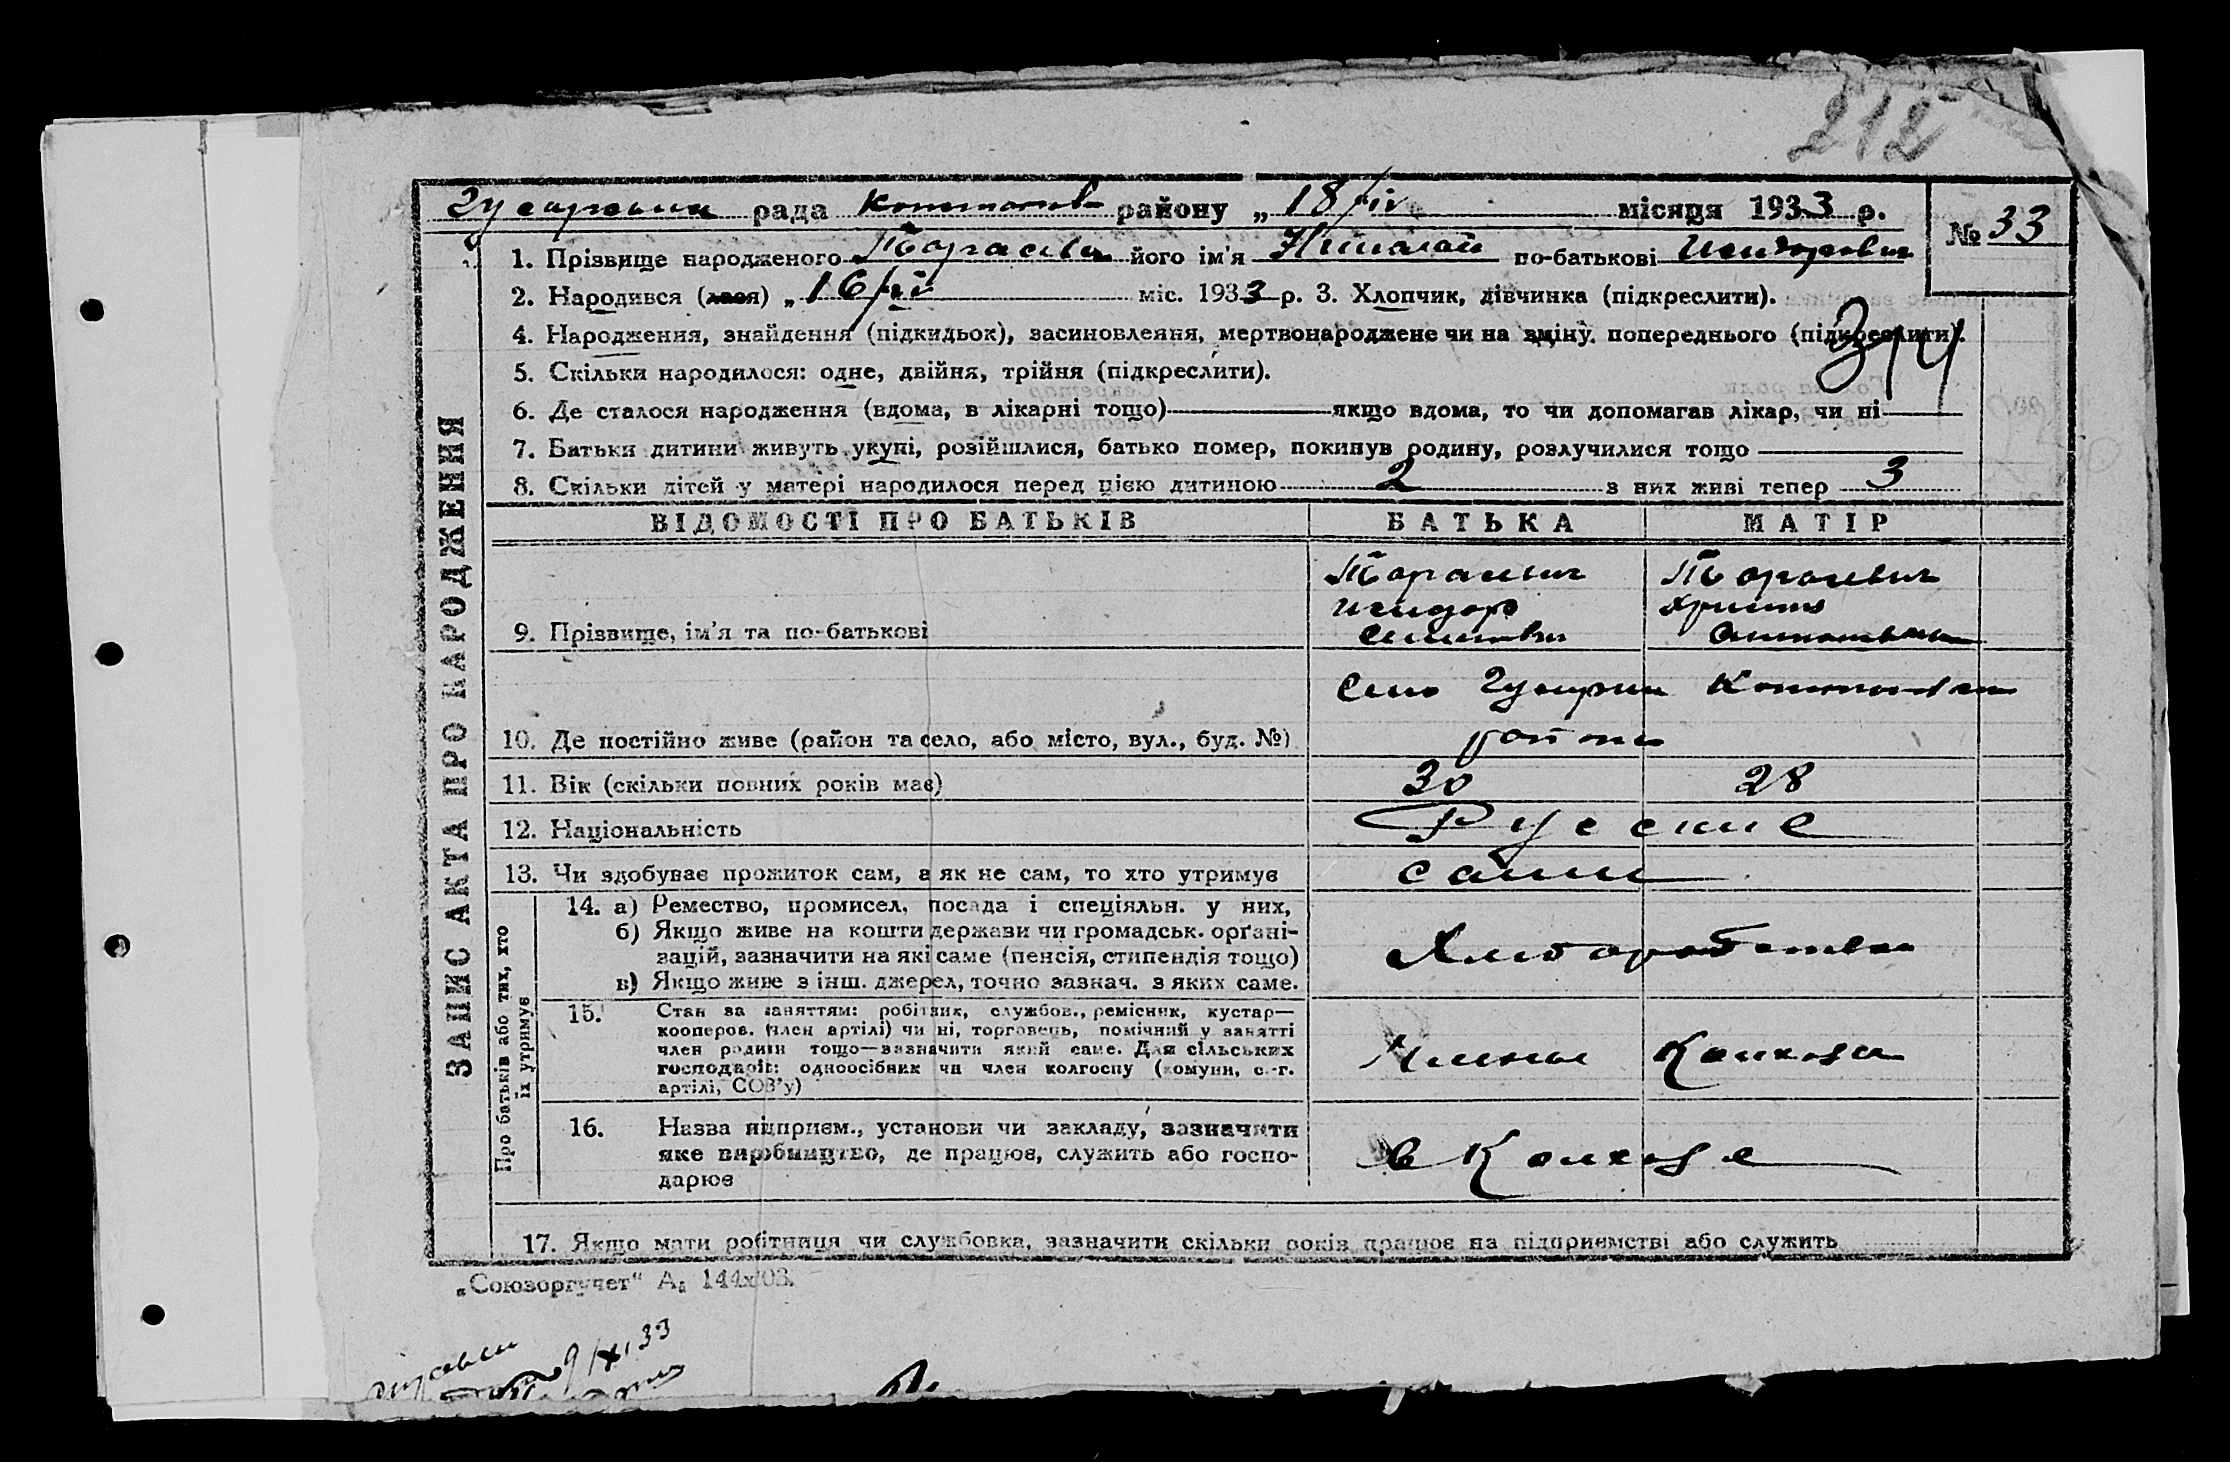 212
рада районом „18/IV місяця 1933 р.
№ 33
1. Прізвище народженого Тарасевич його ім'я Николай по-батькові Исидорович
2. Народився (лася) „16/IV міс. 1933 р. 3. Хлопчик, дівчинка (підкреслити).
4. Народження, знайдення (підкидьок), засиновлення, мертвонароджене чи на зміну попереднього (підкреслити).
5. Скільки народилося: одне, двійня, трійня (підкреслити).
6. Де сталося народження (вдома, в лікарні тощо) якщо вдома, то чи допомагав лікар, чи ні
7. Батьки дитини живуть укупі, розійшлися, батько помер, покинув родину, розлучилися тощо
8. Скільки дітей у матері народилося перед цією дитиною 2 з них живі тепер 3
ЗАПИС АКТА ПРО НАРОДЖЕННЯ
ВІДОМОСТІ ПРО БАТЬКІВ БАТЬКА МАТІР
Тарасевич Тарасевич
Исидор
9. Прізвище, ім'я та по-батькові
Село
10. Де постійно живе (район та село, або місто, вул., буд. №) района
11. Вік (скільки повних років має) 30 28
12. Національність Русские
13. Чи здобуває прожиток сам, а як не сам, то хто утримує сами
Про батьків або тих, хто
їх утримує
14. а) Ремество, промисел, посада і спеціяльн. у них,
б) Якщо живе на кошти держави чи громадськ. орґані-
зацій, зазначити на які саме (пенсія, стипендія тощо)
в) Якщо живе з інш. джерел, точно зазнач. з яких саме.
Хлеборобство
15. Стан за заняттям: робітник, службов., ремісник, кустар—
кооперов. (член артілі) чи ні, торговець, помічний у занятті
член родини тощо—зазначити який саме. Для сільських
господарів: одноосібник чи член колгоспу (комуни, с.-г.
артілі, СОЗ'у)
Члены Колхоза
16. Назва підприєм., установи чи закладу, зазначити
яке виробництво, де працює, служить або госпо-
дарює
в Колхозе
17. Якщо мати робітниця чи службовка, зазначити скільки років працює на підприємстві або служить
„Союзоргучет"
33